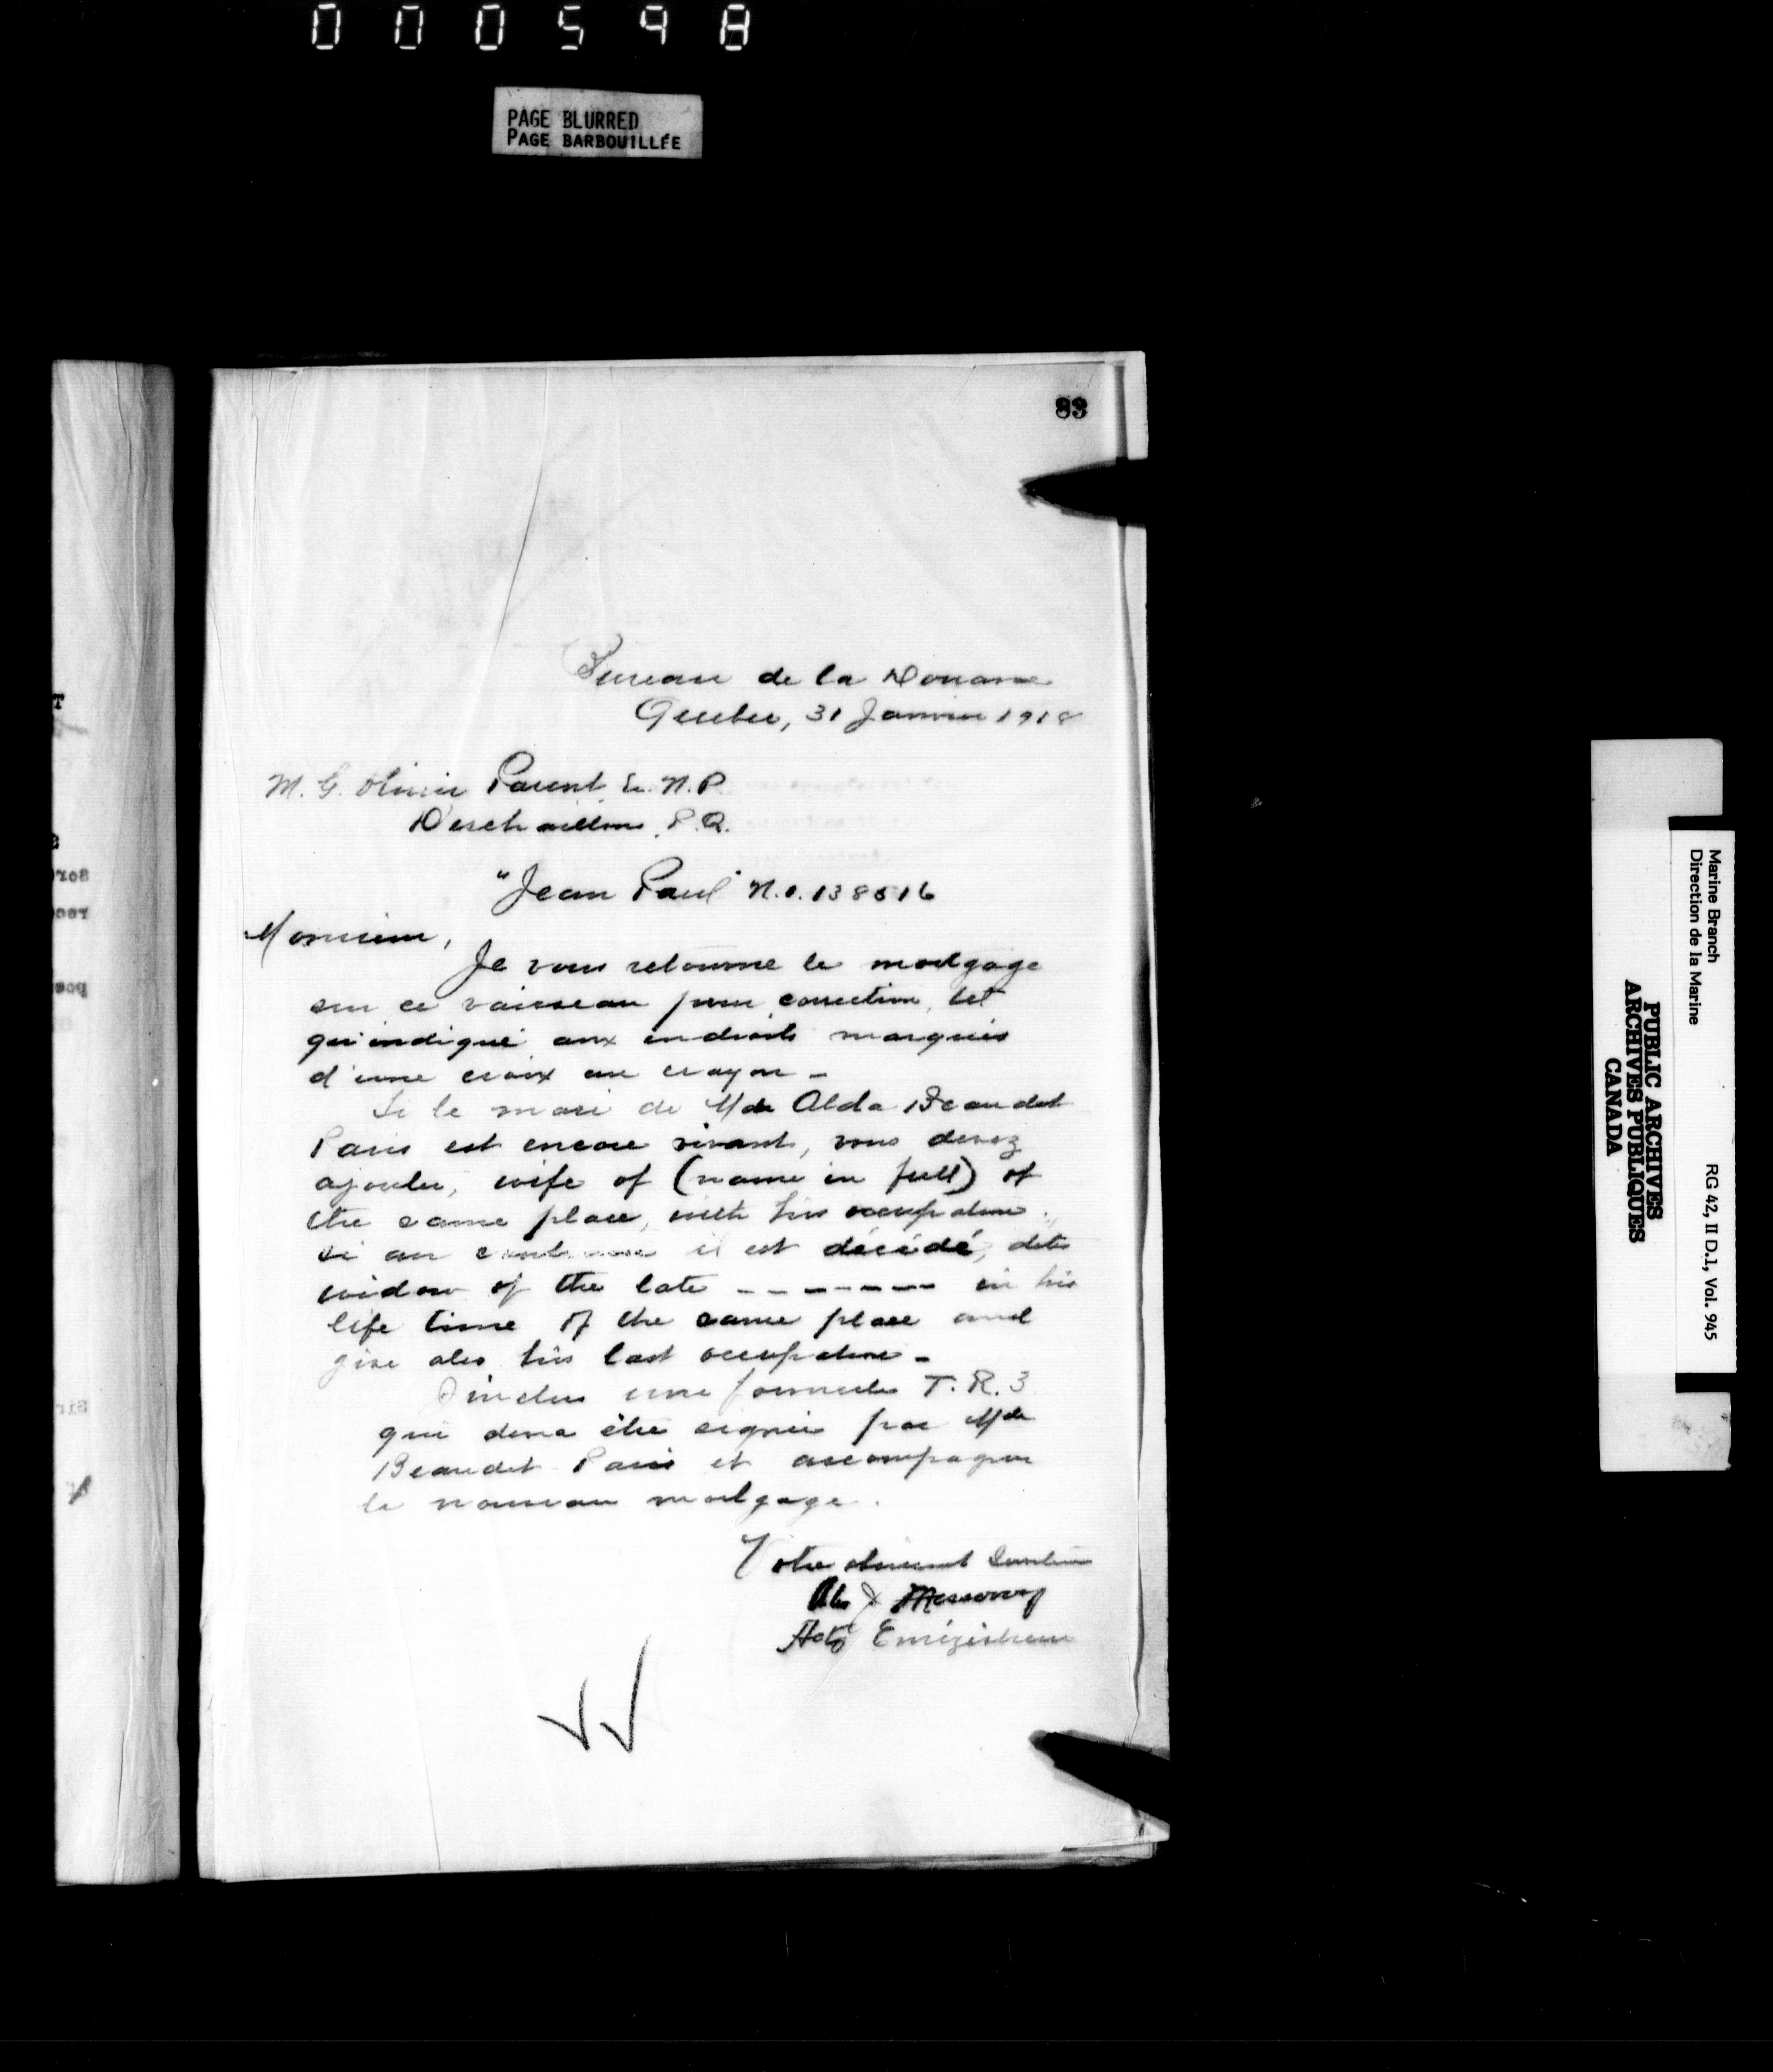 000598
PAGE BLURRED
PAGE BARBOUILLÉE
83
Bureau de la Douane
Quebec, 31 Janvier 1918
M. G. Olivier Parent Ec. N.P.
Deschaillons, P.Q.
"Jean Paul" N.o. 138516
Monsieur,
Je vous retourne le mortgage
sur ce vaisseau pour correction, tel
qu'indiqué aux endroits marqués
d'une croix au crayon -
Si le mari de Mde Alda Beaudet
Paris est encore vivant, vous devez
ajouter, wife of (name in full) of
the same place, with his occupation.
Si au contraire il est décédé, dites
widow of the late - - - - - - - in his
life time of the same place and
give also his last occupation -
J'inclus une formule T.R. 3
qui devra être signée par Mde
Beaudet Paris et accompagner
le nouveau mortgage.
Votre obéissant Serviteur
Actg Enrégistreur
Marine Branch
Direction de la Marine
RG 42, II D.1, Vol. 945
PUBLIC ARCHIVES
ARCHIVES PUBLIQUES
CANADA